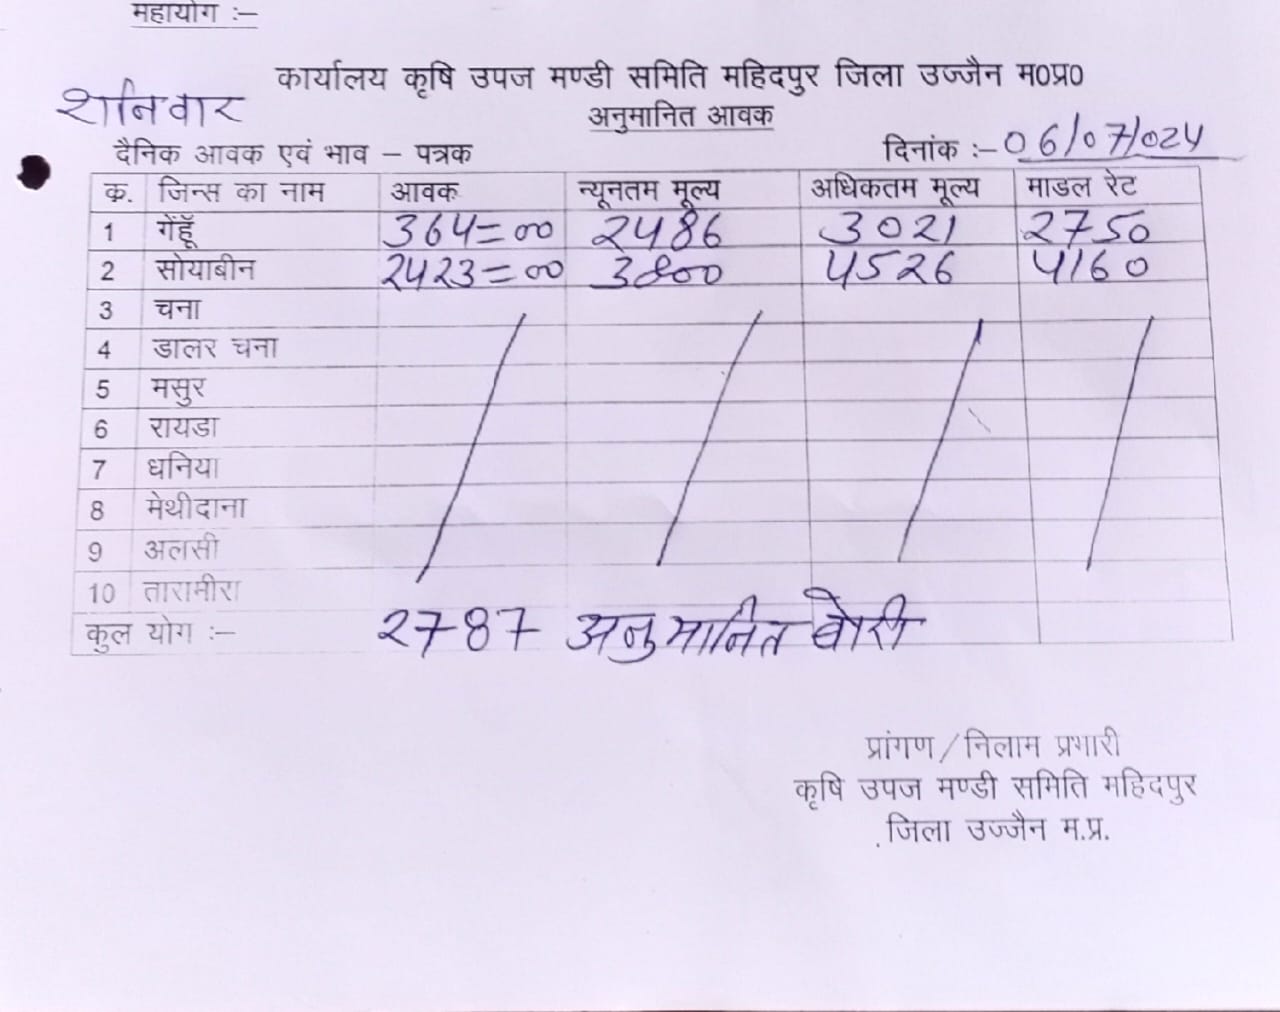 महायोग :–
कार्यालय कृषि उपज मण्डी समिति महिदपुर जिला उज्जैन म0प्र0
शनिवार
अनुमानित आवक
दैनिक आवक एवं भाव – पत्रक दिनांक :– 06/07/024
क्र. जिन्स का नाम आवक न्यूनतम मूल्य अधिकतम मूल्य माडल रेट
1 गेंहूॅ 364=00 2486 3021 2750
2 सोयाबीन 2423=00 3800 4526 4160
3 चना
4 डालर चना
5 मसुर
6 रायडा
7 धनिया
8 मेथीदाना
9 अलसी
10 तारामीरा
कुल योग :– 2787 अनुमानित बोरी
प्रांगण/निलाम प्रभारी
कृषि उपज मण्डी समिति महिदपुर
जिला उज्जैन म.प्र.